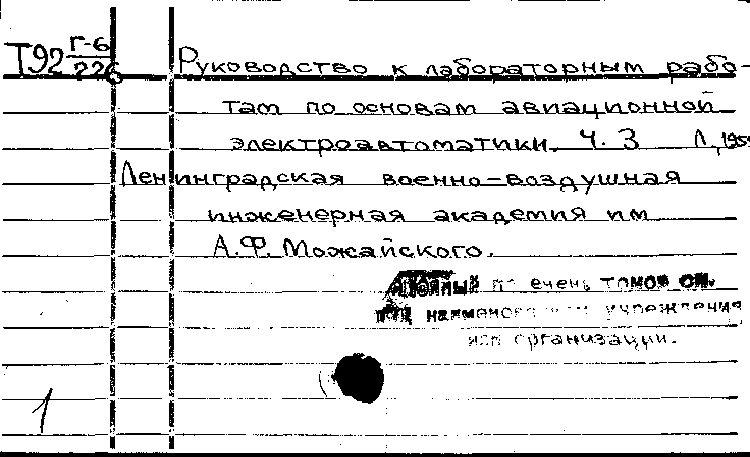 Т92 Г-6/226 Руководство к лабораторным рабо-
там по основам авиационной
электроавтоматики. Ч. 3 Л.,
Ленинградская военно-воздушная
инженерная академия им
А.Ф. Можайского.
перечень томов см.
под наименованием учреждения
или организации.
1